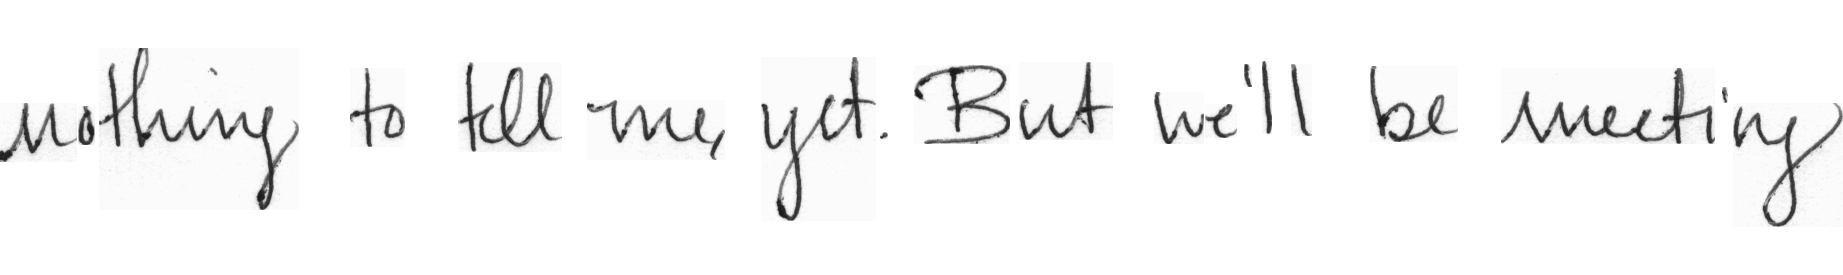 nothing to tell me, yet. But we'll be meeting